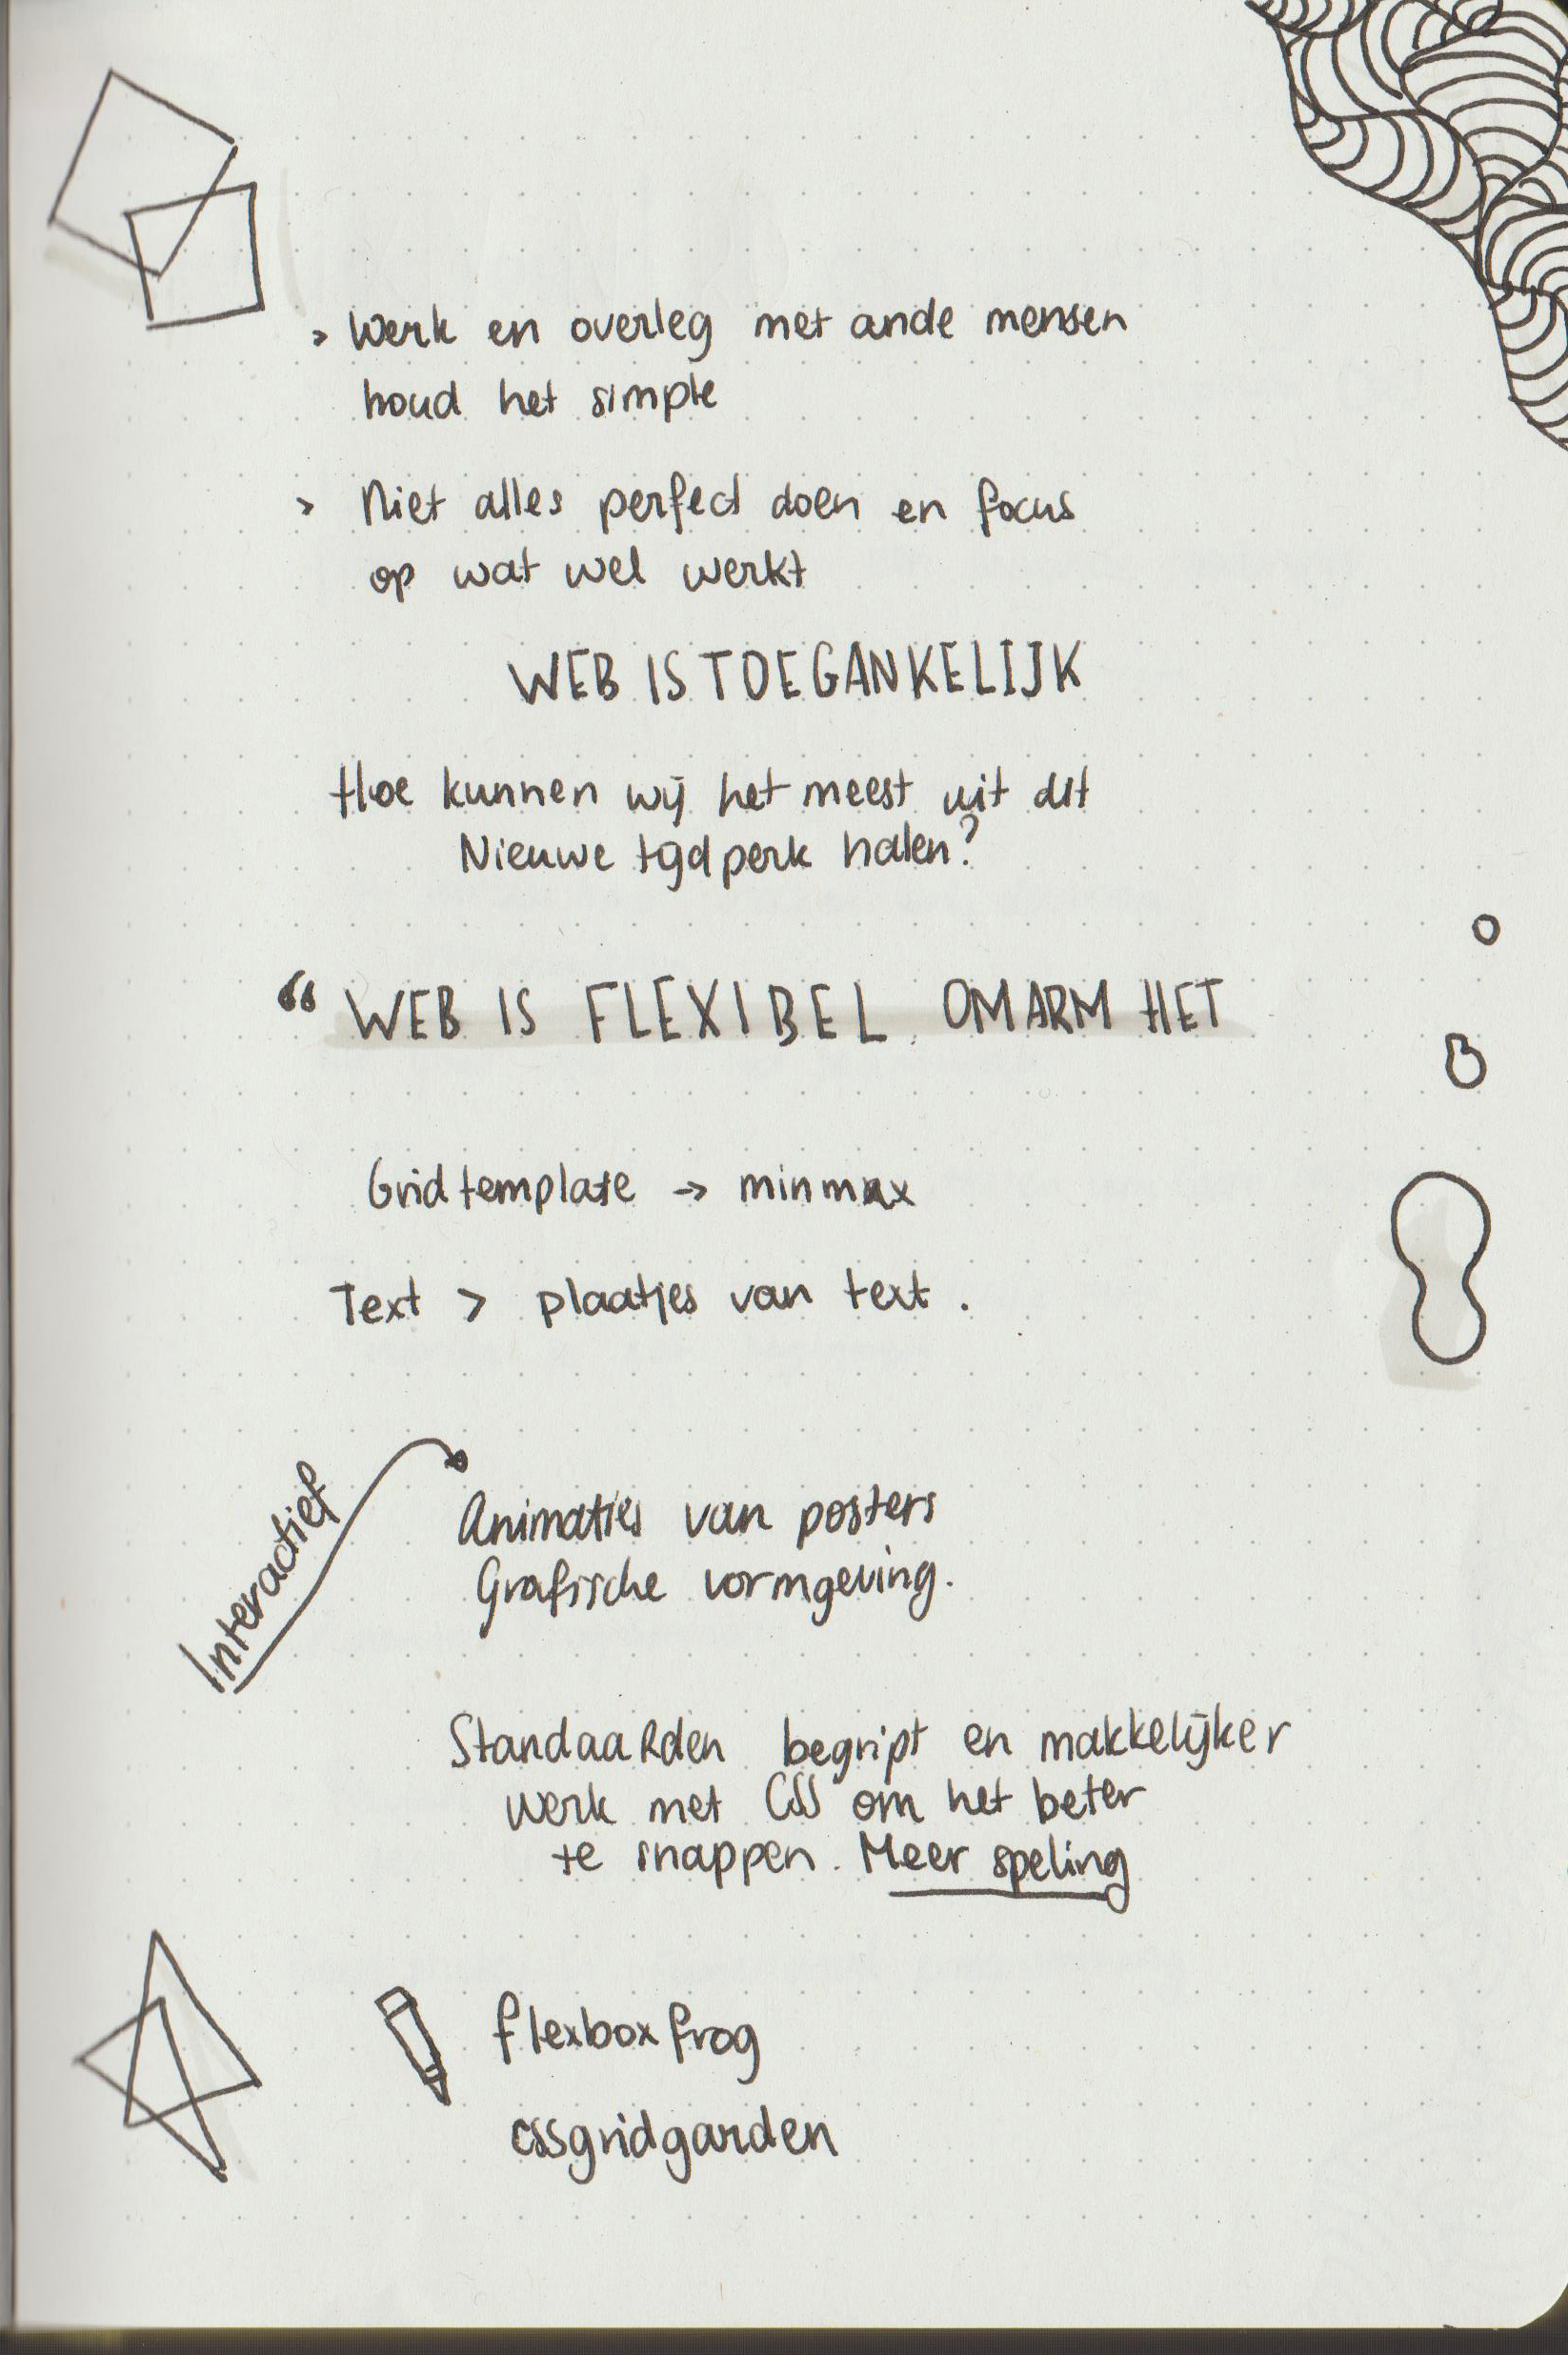 > Werk en overleg met ande mensen
houd het simple
> Niet alles perfect doen en focus
op wat wel werkt
WEB IS TOEGANKELIJK
Hoe kunnen wij het meest uit dit
Nieuwe tijdperk halen?
“ WEB IS FLEXIBEL. OMARM HET
Grid template → minmax
Text > plaatjes van text.
Interactief
Animaties van posters
Grafische vormgeving.
Standaarden begript en makkelijker
werk met CSS om het beter
te snappen. Meer speling
flexbox frog
cssgridgarden